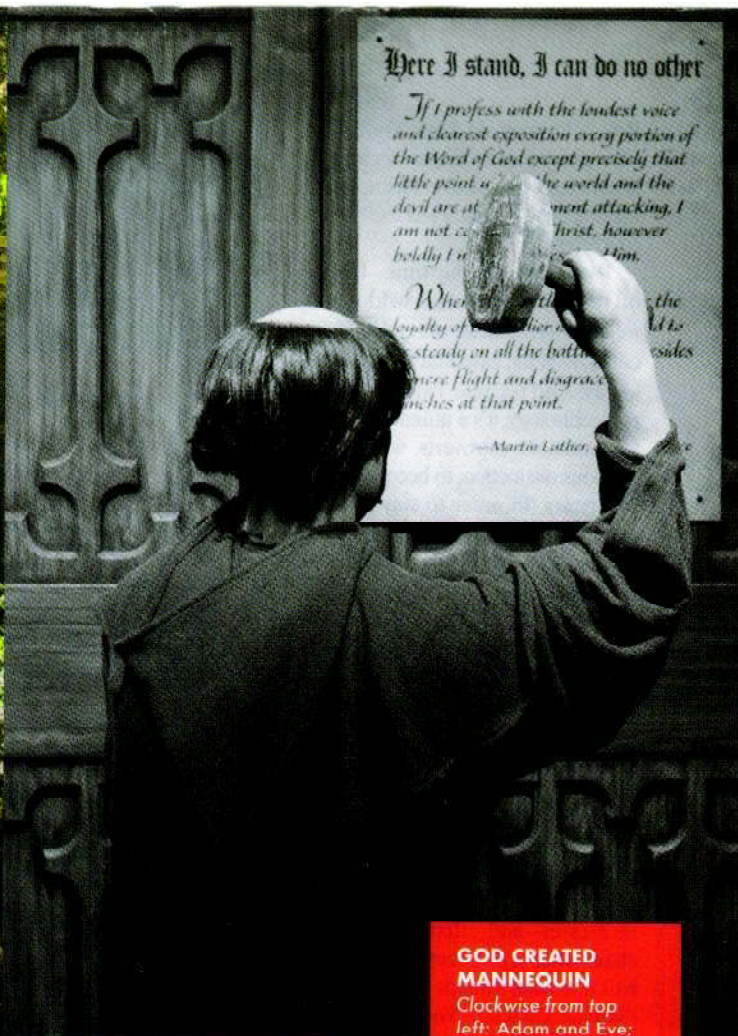 Here I stand, I can do no other
If I profess with the loudest voice
and clearest exposition every portion of
the Word of God except precisely that
little point the world and the
devil are at attacking, I
am not however
boldly I Him.
the
loyalty of to
steady on all the
flight and disgrace
at that point.
—Martin Luther,
GOD CREATED
MANNEQUIN
Clockwise from top
left: Adam and Eve;